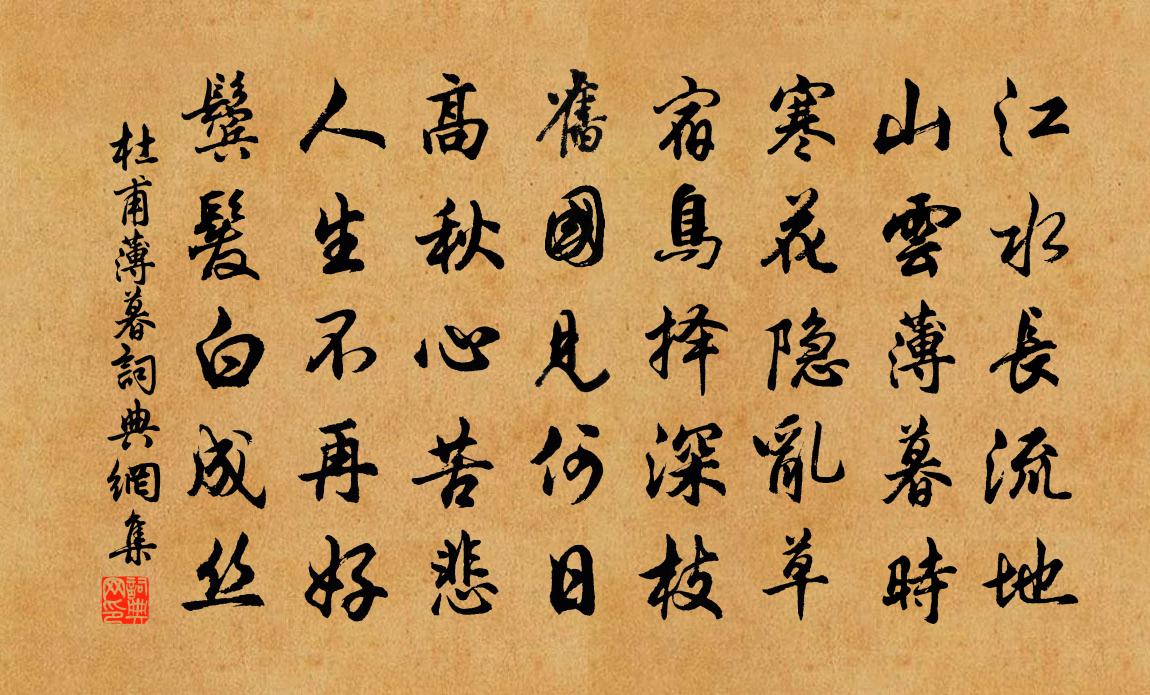 江水長流地
山雲薄暮時
寒花隐亂草
宿鳥择深枝
舊國見何日
高秋心苦悲
人生不再好
鬓髮白成丝
杜甫薄暮詞典網集
詞典網印